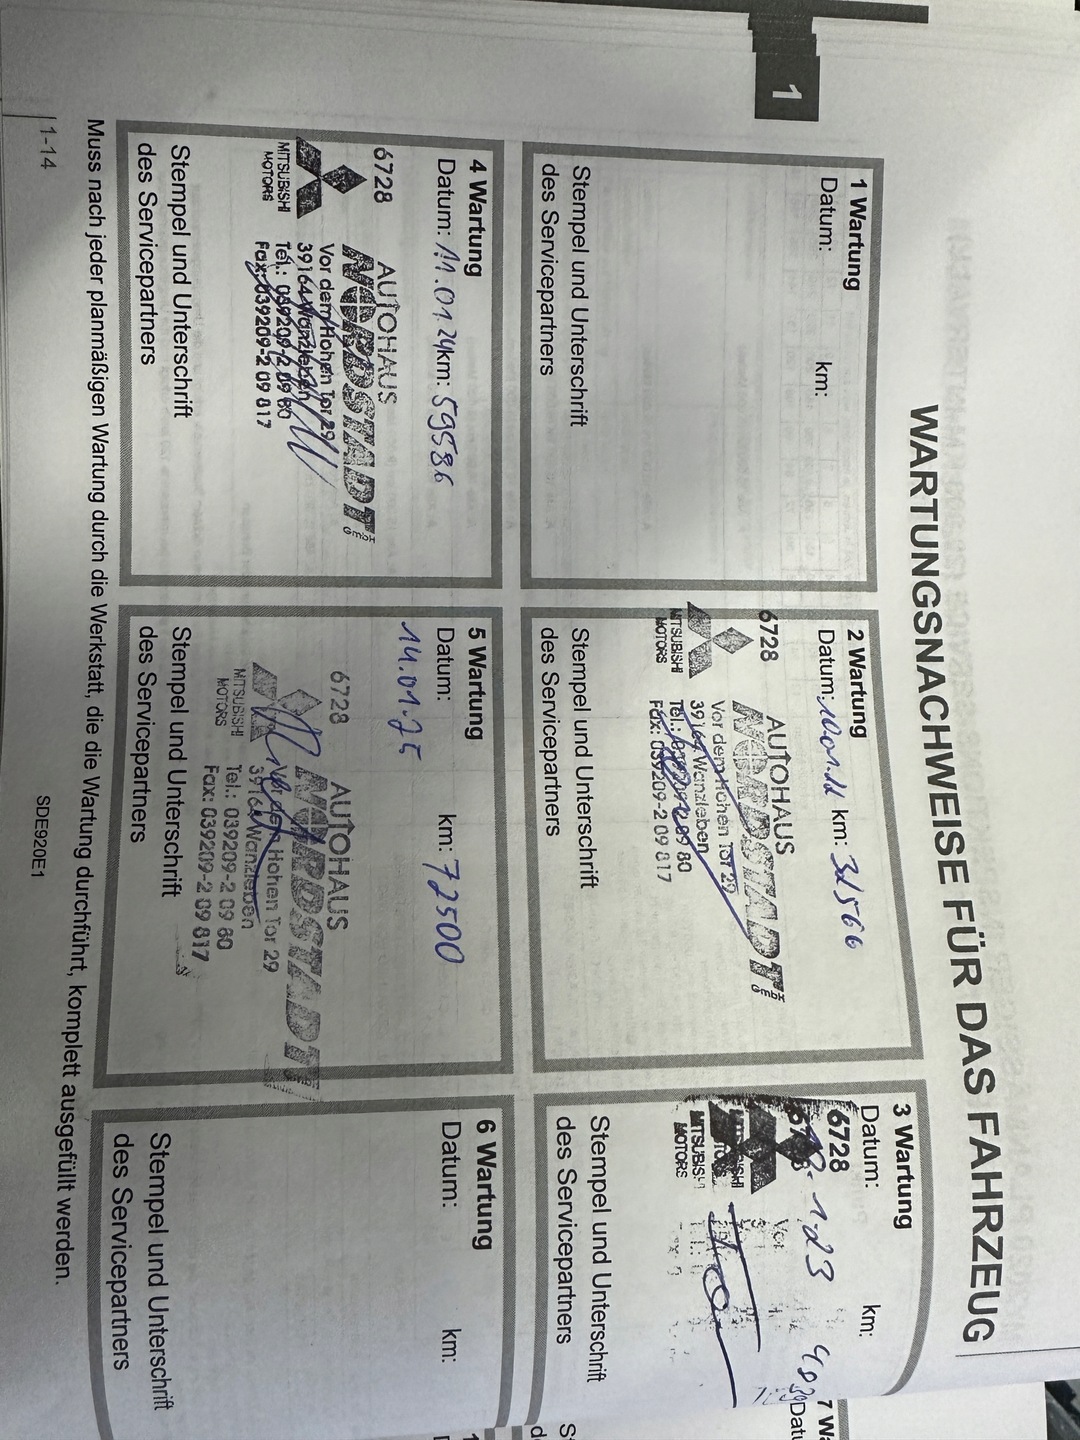 1
WARTUNGSNACHWEISE FÜR DAS FAHRZEUG
1 Wartung
Datum: km:
Stempel und Unterschrift
des Servicepartners
2 Wartung
Datum: km:
6728
MITSUBISHI
MOTORS
AUTOHAUS
NORDSTADT GmbH
Vor dem Hohen Tor 29
39164 Wanzleben
Tel.: 039209-2 09 80
Fax: 039209-2 09 817
Stempel und Unterschrift
des Servicepartners
3 Wartung
Datum: km:
6728
MITSUBISHI
MOTORS
Stempel und Unterschrift
des Servicepartners
4 Wartung
Datum: 11.01.24 km: 59586
6728
MITSUBISHI
MOTORS
AUTOHAUS
NORDSTADT GmbH
Vor dem Hohen Tor 29
39164 Wanzleben
Tel.: 039209-2 09 80
Fax: 039209-2 09 817
Stempel und Unterschrift
des Servicepartners
5 Wartung
Datum: km: 72500
14.01.25
6728
MITSUBISHI
MOTORS
AUTOHAUS
NORDSTADT
Vor dem Hohen Tor 29
39164 Wanzleben
Tel.: 039209-2 09 80
Fax: 039209-2 09 817
Stempel und Unterschrift
des Servicepartners
6 Wartung
Datum: km:
Stempel und Unterschrift
des Servicepartners
Muss nach jeder planmäßigen Wartung durch die Werkstatt, die die Wartung durchführt, komplett ausgefüllt werden.
1-14
SDE920E1